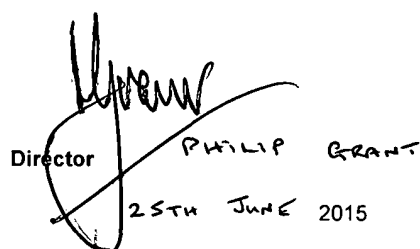 Director PHILIP GRANT
25TH JUNE 2015